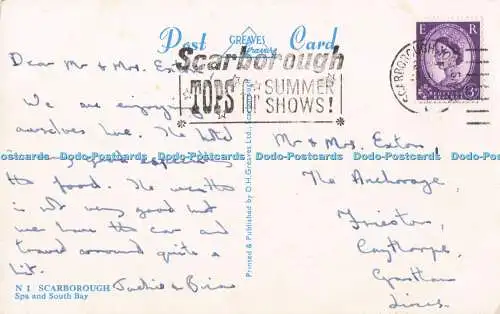 Post GREAVES Card
Scarborough
TOPS for SUMMER
SHOWS!
SCARBOROUGH
E R
3D
Dear Mr & Mrs. Exton,
We are enjoying
ourselves here. The hotel
is very good especially
the food. The weather
is not very good but
we have the car and
travel around quite a
bit.
Jackie & Brian
Mr & Mrs. Exton,
The Anchorage,
Frieston,
Caythorpe,
Grantham
Lincs.
Printed & Published by D.H. Greaves Ltd., Scarborough
N 1 SCARBOROUGH
Spa and South Bay
Dodo-Postcards Dodo-Postcards Dodo-Postcards Dodo-Postcards Dodo-Postcards Dodo-Postcards